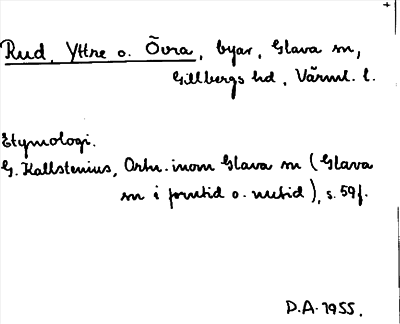 Rud, Yttre o. Övra, byar, Glava sn,
Gillbergs hd, Värml. l.
Etymologi.
G. Kallstenius, Ortn. inom Glava sn (Glava
sn i forntid o. nutid), s. 59 f.
D.A. 1955.